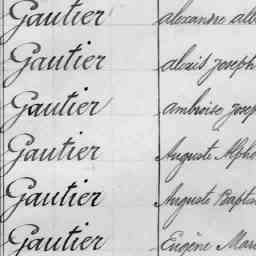 Gautier alexandre
Gautier alexis Joseph
Gautier ambroise
Gautier Auguste
Gautier Auguste
Gautier Eugène